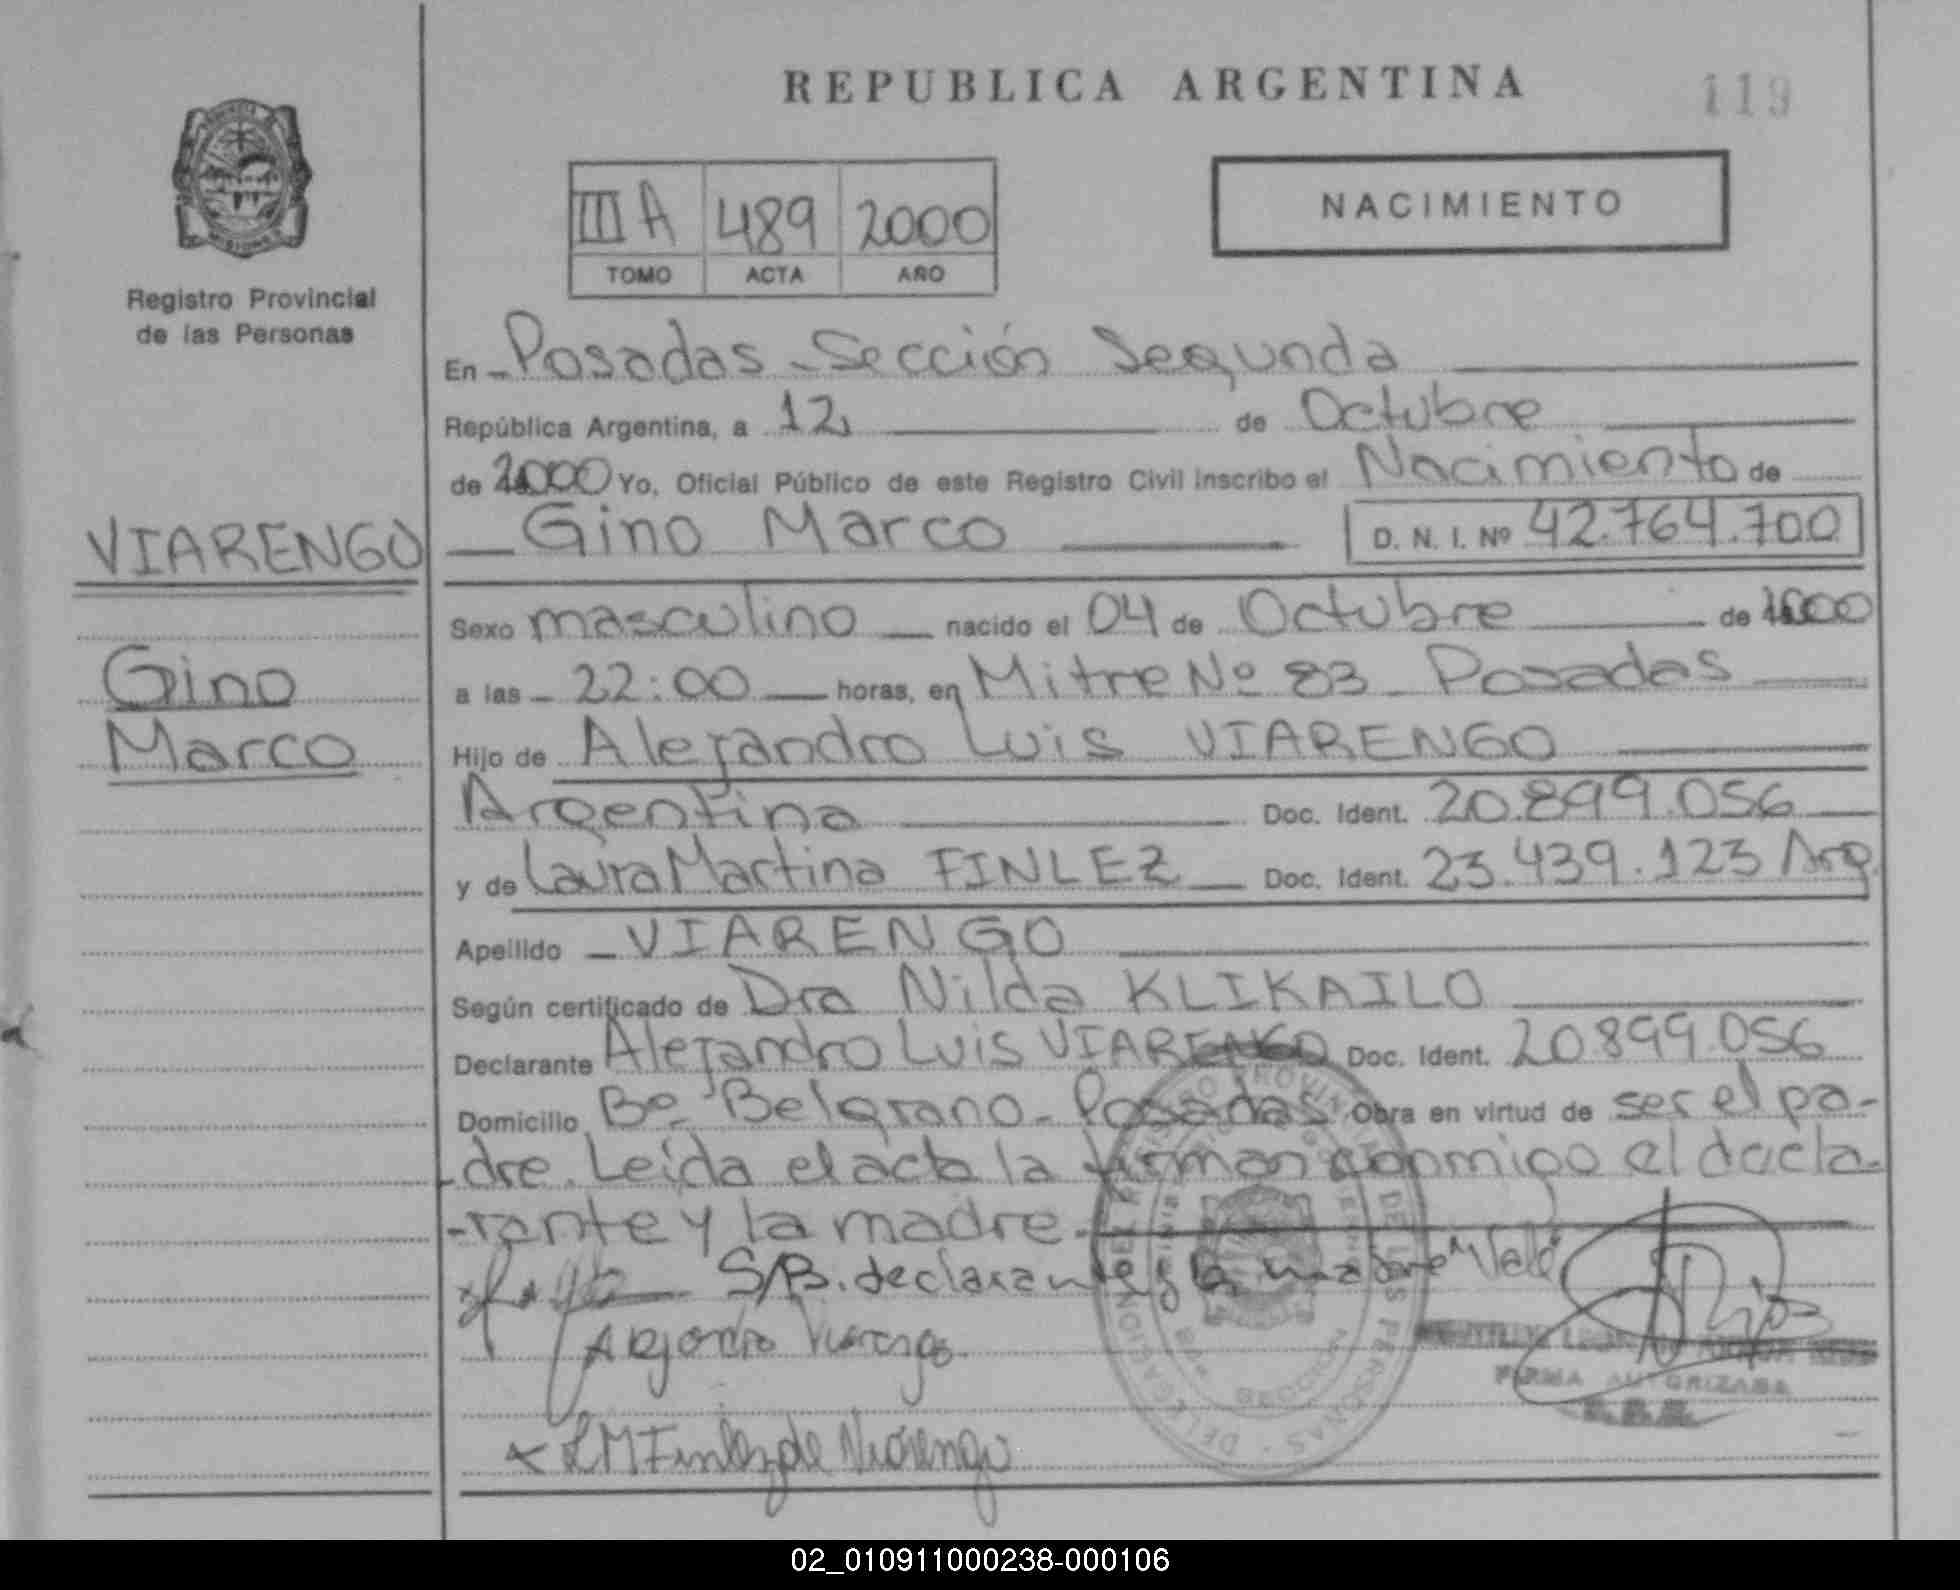 REPUBLICA ARGENTINA
119
NACIMIENTO
III A 489 2000
TOMO ACTA AÑO
Registro Provincial
de las Personas
En Posadas - Sección Segunda
República Argentina, a 12 de Octubre
de 2000 Yo, Oficial Público de este Registro Civil inscribo el Nacimiento de
VIARENGO
Gino Marco D. N. I. Nº 42.764.700
Sexo masculino nacido el 04 de Octubre de 2000
Gino
a las 22:00 horas, en Mitre Nº 83 - Posadas
Marco
Hijo de Alejandro Luis VIARENGO
Argentina Doc. Ident. 20.899.056
y de Laura Martina FINLEZ Doc. Ident. 23.439.123 Arg.
Apellido VIARENGO
Según certificado de Dra Nilda KLIKAILO
Declarante Alejandro Luis VIARENGO Doc. Ident. 20.899.056
Domicilio Bº Belgrano - Posadas Obra en virtud de ser el pa-
dre. Leída el acta la firman conmigo el decla-
-rante y la madre
S/B. declarante y la madre "Vale"
Alejandro Viarengo
LMFinlez de Viarengo
FIRMA AUTORIZADA
02_010911000238-000106